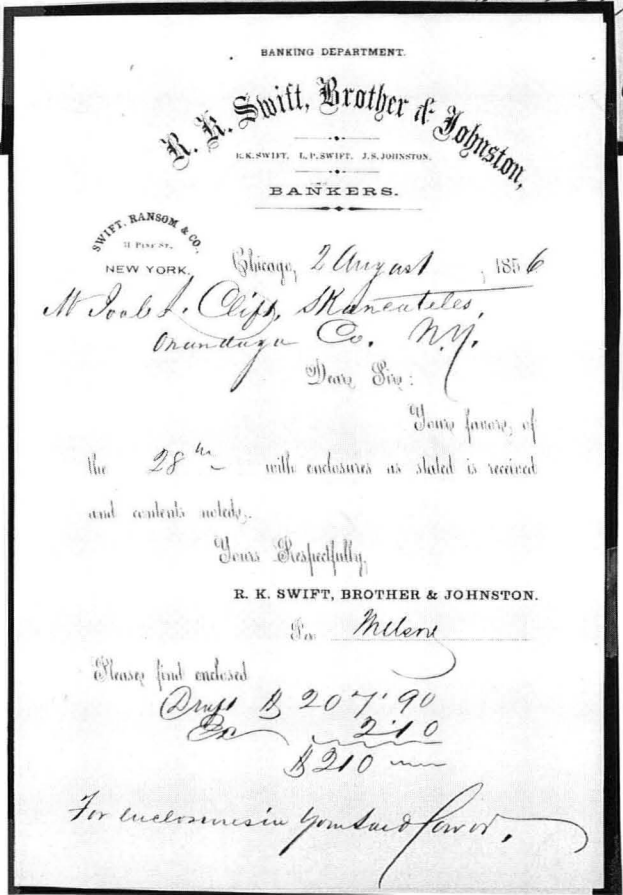 BANKING DEPARTMENT.
R. K. Swift, Brother & Johnston,
R. K. SWIFT, L. P. SWIFT, J. S. JOHNSTON,
BANKERS.
SWIFT, RANSOM & CO.,
31 PINE ST.,
NEW YORK.
Chicago, 2 August, 1856
Clift, Skaneateles,
Onondaga Co. N.Y.
Dear Sir:
Yours favor, of
the 28th with enclosures as stated is received
and contents noted.
Yours Respectfully,
R. K. SWIFT, BROTHER & JOHNSTON.
Please find enclosed
Draft $ 207.90
Ex 2.10
$ 210
For enclosures in your said favor.